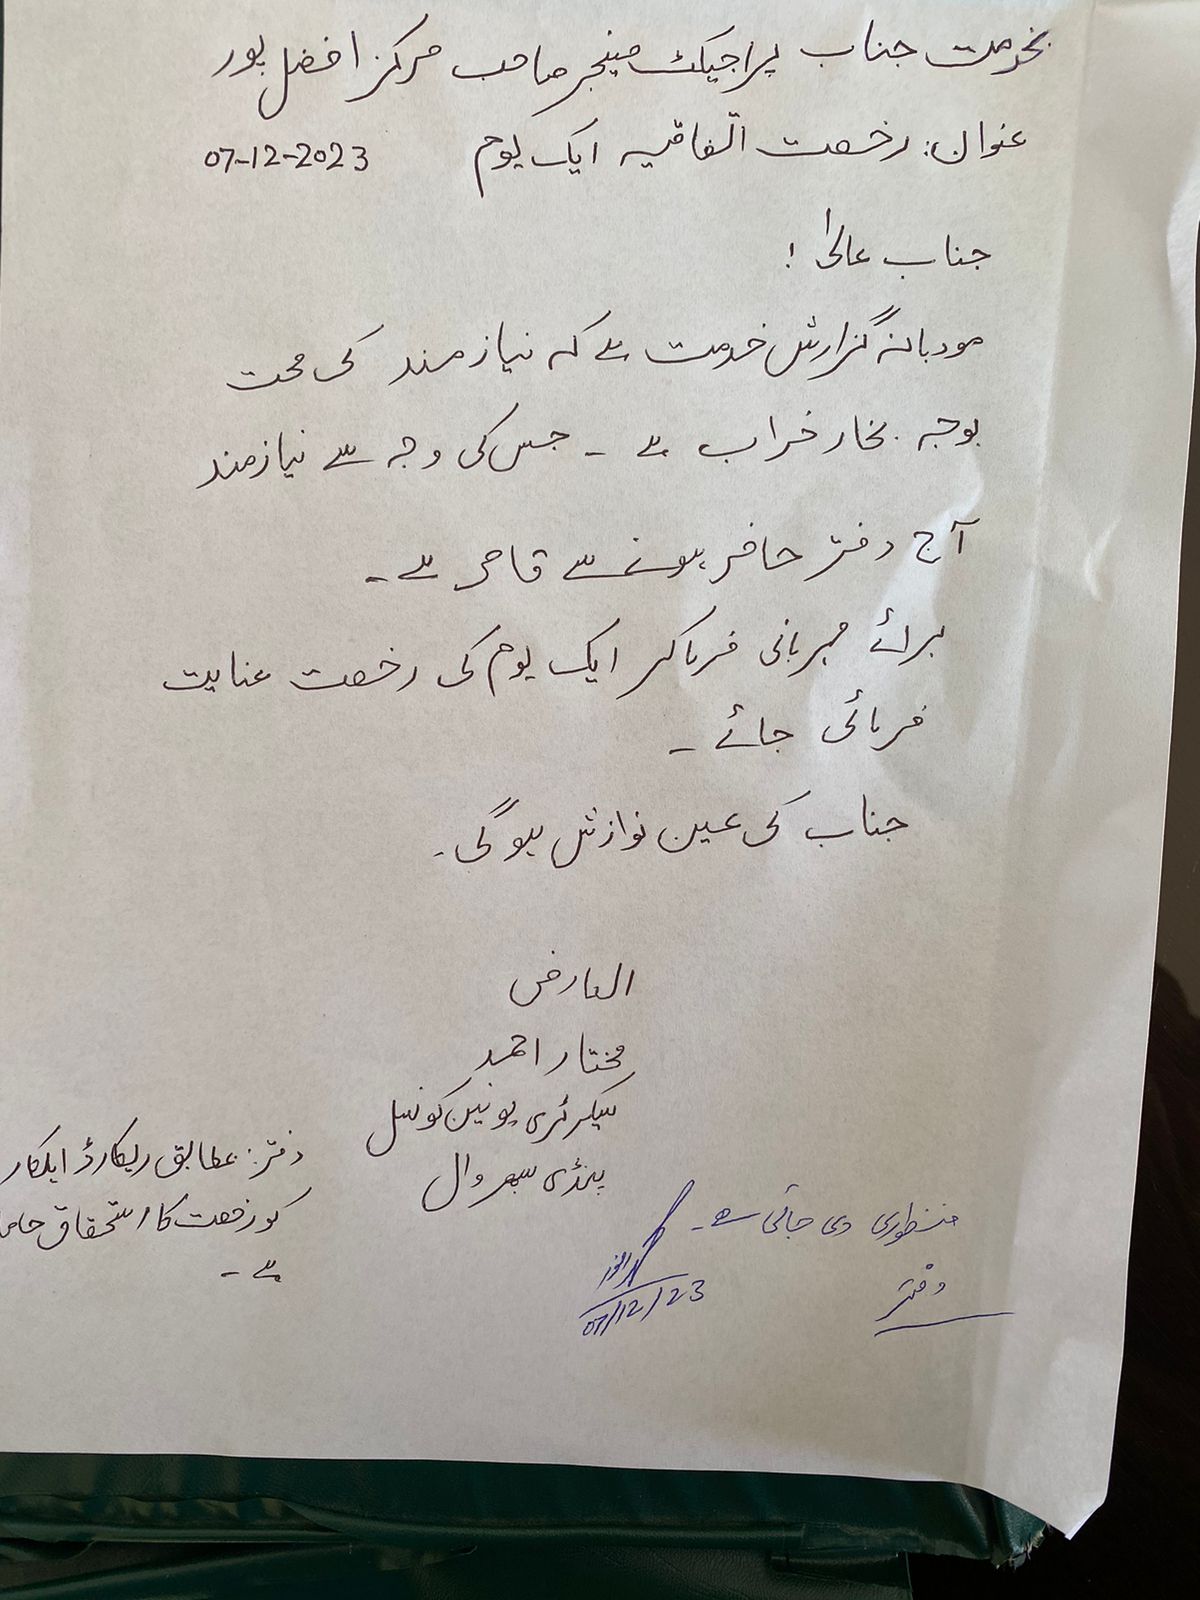 بخدمت جناب پراجیکٹ مینجر صاحب مرکز افضل پور
عنوان: رخصت اتفاقیہ ایک یوم 07-12-2023
جناب عالیٰ!
مودبانہ گزارش خدمت ہے کہ نیازمند کی صحت
بوجہ بخار خراب ہے ۔ جس کی وجہ سے نیازمند
آج دفتر حاضر ہونے سے قاصر ہے۔
برائے مہربانی فرما کر ایک یوم کی رخصت عنایت
فرمائی جائے ۔
جناب کی عین نوازش ہو گی۔
العارض
مختار احمد
سیکرٹری یونین کونسل
پنڈی سبھروال
دفتر: بمطابق ریکارڈ اہلکار
کو رخصت کا استحقاق
ہے ۔
منظوری دی جاتی ہے۔
07/12/23
دفتر